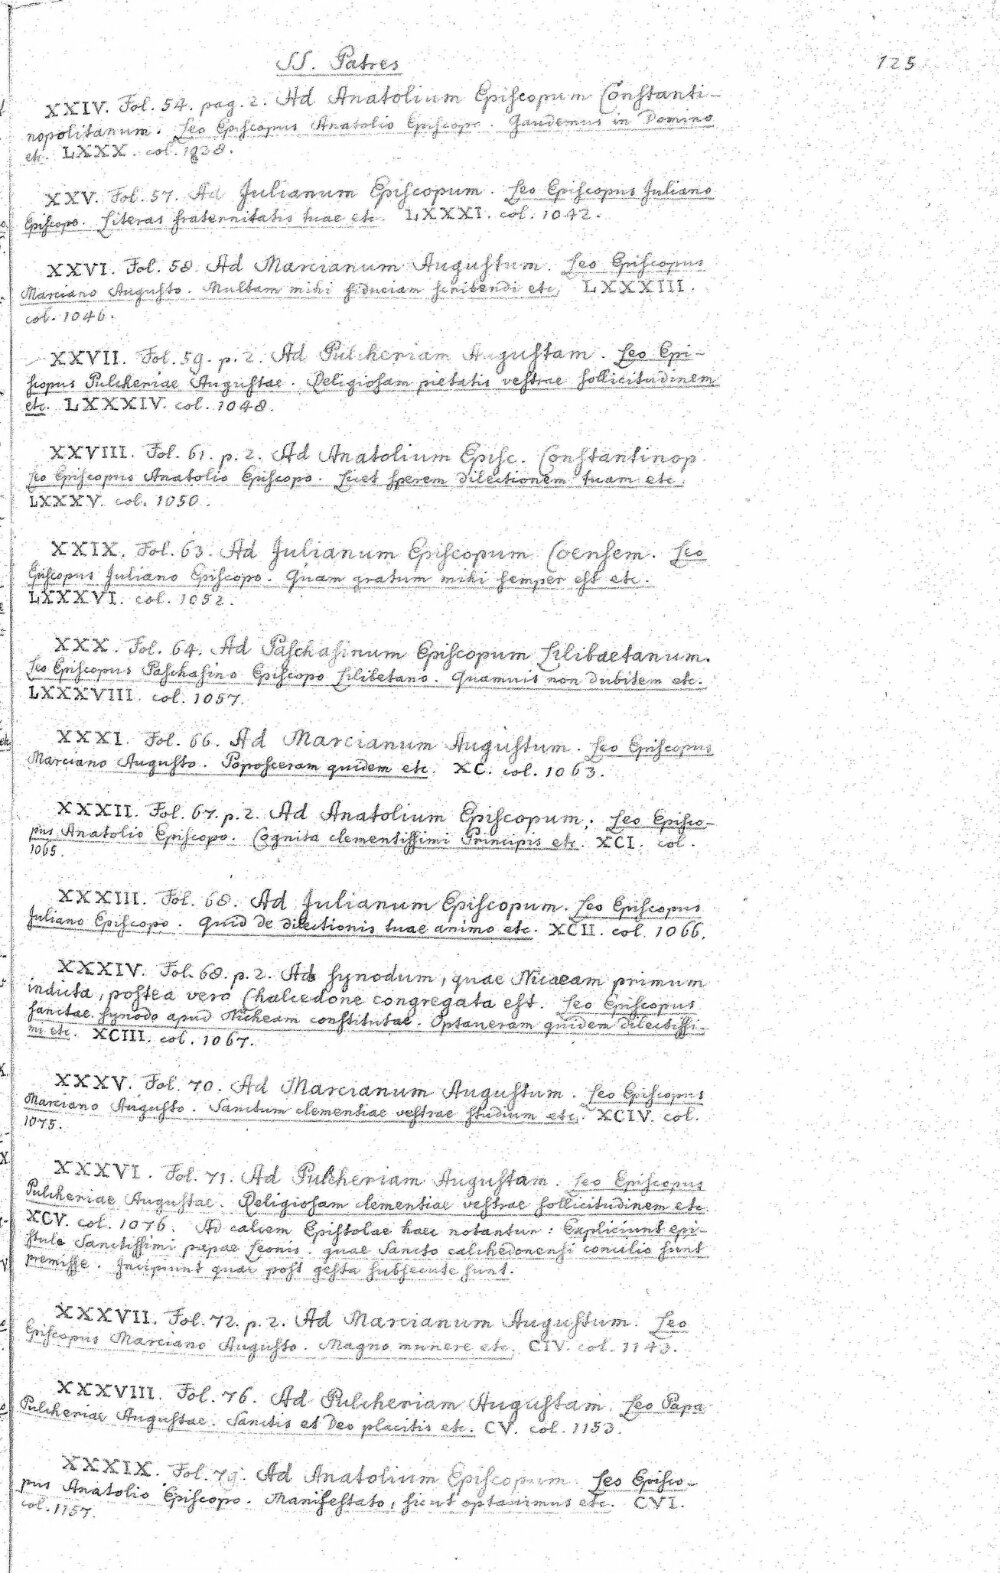 SS. Patres
125
XXIV. Fol. 54. pag. 2. Ad Anatolium Episcopum Constanti-
nopolitanum. Leo Episcopus Anatolio Episcopo. Gaudemus in Domino
etc. LXXX. col. 1038.
XXV. Fol. 57. Ad Julianum Episcopum. Leo Episcopus Juliano
Episcopo. Literas fraternitatis tuae etc. LXXXI. col. 1042.
XXVI. Fol. 58. Ad Marcianum Augustum. Leo Episcopus
Marciano Augusto. Multam mihi fiduciam scribendi etc. LXXXIII.
col. 1046.
XXVII. Fol. 59. p. 2. Ad Pulcheriam Augustam. Leo Epi-
scopus Pulcheriae Augustae. Religiosam pietatis vestrae sollicitudinem
etc. LXXXIV. col. 1048.
XXVIII. Fol. 61. p. 2. Ad Anatolium Episc. Constantinop.
Leo Episcopus Anatolio Episcopo. Licet sperem dilectionem tuam etc.
LXXXV. col. 1050.
XXIX. Fol. 63. Ad Julianum Episcopum Coensem. Leo
Episcopus Juliano Episcopo. Quam gratum mihi semper est etc.
LXXXVI. col. 1052.
XXX. Fol. 64. Ad Paschasinum Episcopum Lilibaetanum.
Leo Episcopus Paschasino Episcopo Lilibetano. Quamuis non dubitem etc.
LXXXVIII. col. 1057.
XXXI. Fol. 66. Ad Marcianum Augustum. Leo Episcopus
Marciano Augusto. Poposceram quidem etc. XC. col. 1063.
XXXII. Fol. 67. p. 2. Ad Anatolium Episcopum. Leo Episco-
pus Anatolio Episcopo. Cognita clementissimi Principis etc. XCI. col.
1065.
XXXIII. Fol. 68. Ad Julianum Episcopum. Leo Episcopus
Juliano Episcopo. Quid de dilectionis tuae animo etc. XCII. col. 1066.
XXXIV. Fol. 68. p. 2. Ad synodum, quae Nicaeam primum
indicta, postea vero Chalcedone congregata est. Leo Episcopus
sanctae synodo apud Nicheam constitutae. Optaueram quidem dilectissi-
mi etc. XCIII. col. 1067.
XXXV. Fol. 70. Ad Marcianum Augustum. Leo Episcopus
Marciano Augusto. Sanctum clementiae vestrae studium etc. XCIV. col.
1075.
XXXVI. Fol. 71. Ad Pulcheriam Augustam. Leo Episcopus
Pulcheriae Augustae. Religiosam clementiae vestrae sollicitudinem etc.
XCV. col. 1076. Ad calcem Epistolae haec notantur: Expliciunt epi-
stule Sanctissimi pape Leonis. quae Sancto calchedonensi concilio sunt
premisse. Incipiunt quae post gesta subsecute sunt.
XXXVII. Fol. 72. p. 2. Ad Marcianum Augustum. Leo
Episcopus Marciano Augusto. Magno munere etc. CIV. col. 1143.
XXXVIII. Fol. 76. Ad Pulcheriam Augustam. Leo Papa
Pulcheriae Augustae. Sanctis et Deo placitis etc. CV. col. 1153.
XXXIX. Fol. 79. Ad Anatolium Episcopum. Leo Episco-
pus Anatolio Episcopo. Manifestato, sicut optavimus etc. CVI.
col. 1157.